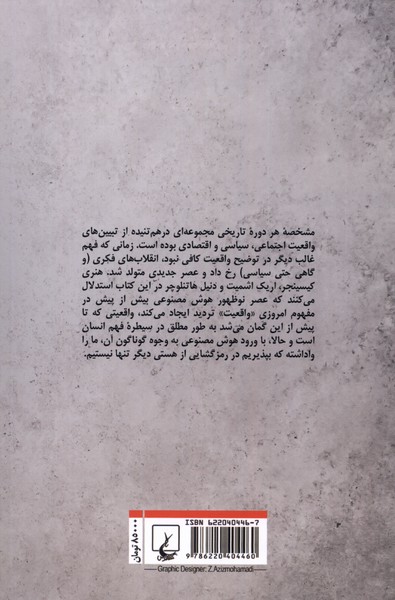 مشخصهٔ هر دورهٔ تاریخی مجموعه‌ای درهم‌تنیده از تبیین‌های
واقعیت اجتماعی، سیاسی و اقتصادی بوده است. زمانی که فهم
غالب دیگر در توضیح واقعیت کافی نبود، انقلاب‌های فکری (و
گاهی حتی سیاسی) رخ داد و عصر جدیدی متولد شد. هنری
کیسینجر، اریک اشمیت و دنیل هاتنلوچر در این کتاب استدلال
می‌کنند که عصر نوظهور هوش مصنوعی بیش از پیش در
مفهوم امروزی «واقعیت» تردید ایجاد می‌کند، واقعیتی که تا
پیش از این گمان می‌شد به طور مطلق در سیطرهٔ فهم انسان
است و حالا، با ورود هوش مصنوعی به وجوه گوناگون آن، ما را
واداشته که بپذیریم در رمزگشایی از هستی دیگر تنها نیستیم.
ISBN 622040446-7
9 786220 404460
۸۵۰۰۰ تومان
Graphic Designer: Z.Azizmohamadi